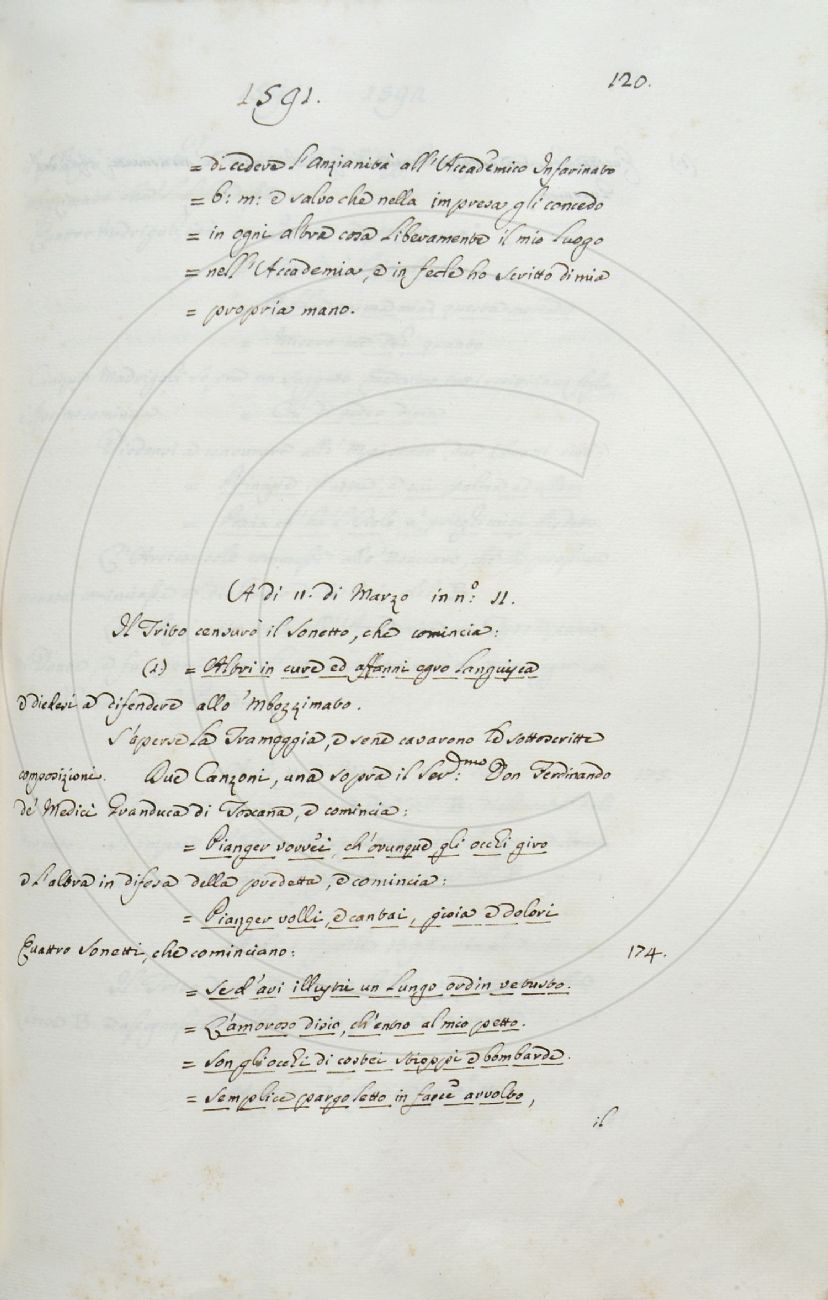 1591.
120.
= di cedere l'Anzianità all'Accademico Infarinato
= b: m: e salvo che nella impresa gli concedo
= in ogni altra cosa liberamente il mio luogo
= nell'Accademia, e in fede ho scritto di mia
= propria mano.
A di 11. di Marzo in n.º 11.
Il Trito censurò il Sonetto, che comincia:
(1) = Altri in cure ed affanni egro languisca
e diedesi a difendere allo 'Mbozzimato.
S'aperse la Tramoggia, e sene cavarono le sottoscritte
composizioni. Due Canzoni, una sopra il Ser:mo Don Ferdinando
de' Medici Granduca di Toscana, e comincia:
= Pianger vorrei, ch'ovunque gli occhi giro
e l'altra in difesa della predetta, e comincia:
= Pianger volli, e cantai, gioia e dolori
Quattro Sonetti, che cominciano:
174.
= Se d'avi illustri un lungo ordin vetusto.
= L'amoroso disio, ch'entro al mio petto.
= Son gli occhi di costei stioppi e bombarde.
= Semplice pargoletto in fasce avvolto,
il